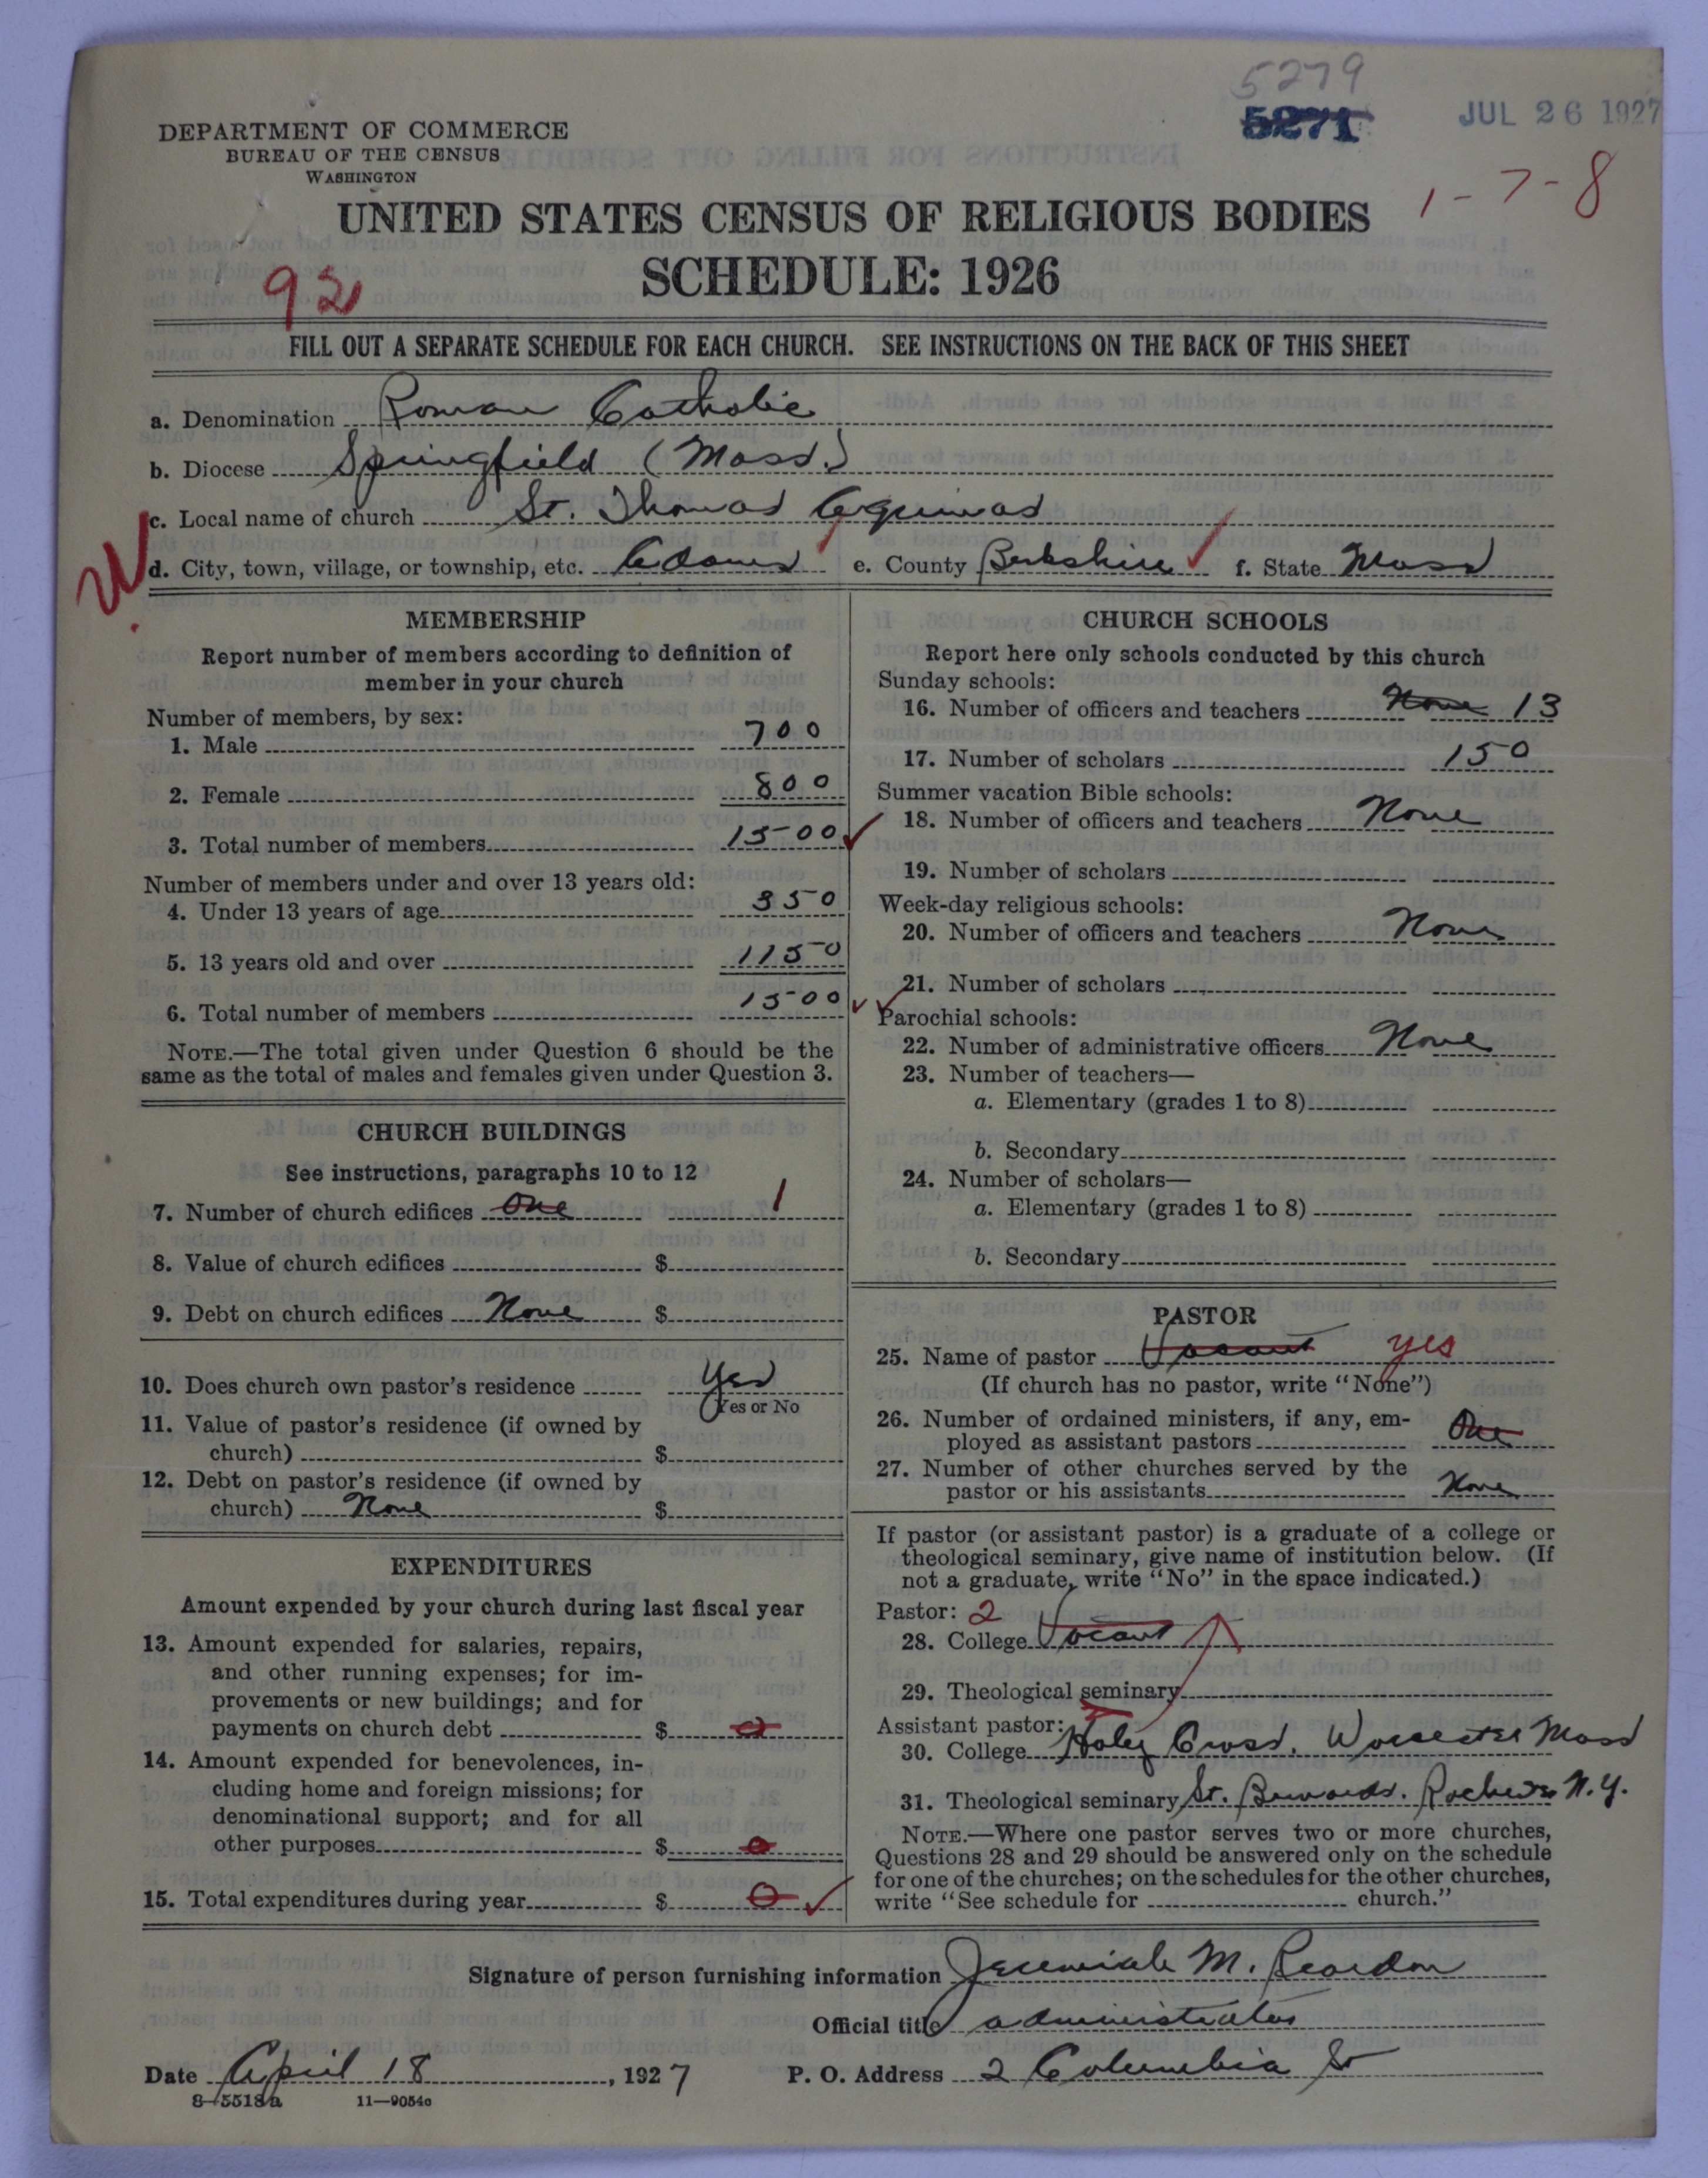 5279
5271
JUL 26 1927
DEPARTMENT OF COMMERCE
BUREAU OF THE CENSUS
WASHINGTON
1-7-8
UNITED STATES CENSUS OF RELIGIOUS BODIES
SCHEDULE: 1926
FILL OUT A SEPARATE SCHEDULE FOR EACH CHURCH. SEE INSTRUCTIONS ON THE BACK OF THIS SHEET
a. Denomination Roman Catholic
b. Diocese Springfield (Mass.)
c. Local name of church St. Thomas Aquinas
d. City, town, village, or township, etc. Adams e. County Berkshire f. State Mass
MEMBERSHIP
Report number of members according to definition of
member in your church
Number of members, by sex:
1. Male 700
2. Female 800
3. Total number of members 1500
Number of members under and over 13 years old:
4. Under 13 years of age 350
5. 13 years old and over 1150
6. Total number of members 1500
NOTE.—The total given under Question 6 should be the
same as the total of males and females given under Question 3.
CHURCH BUILDINGS
See instructions, paragraphs 10 to 12
7. Number of church edifices One 1
8. Value of church edifices $
9. Debt on church edifices None $
10. Does church own pastor's residence Yes
Yes or No
11. Value of pastor's residence (if owned by
church) $
12. Debt on pastor's residence (if owned by
church) None $
EXPENDITURES
Amount expended by your church during last fiscal year
13. Amount expended for salaries, repairs,
and other running expenses; for im-
provements or new buildings; and for
payments on church debt $ 0
14. Amount expended for benevolences, in-
cluding home and foreign missions; for
denominational support; and for all
other purposes $ 0
15. Total expenditures during year $ 0
CHURCH SCHOOLS
Report here only schools conducted by this church
Sunday schools:
16. Number of officers and teachers None 13
17. Number of scholars 150
Summer vacation Bible schools:
18. Number of officers and teachers None
19. Number of scholars
Week-day religious schools:
20. Number of officers and teachers None
21. Number of scholars
Parochial schools:
22. Number of administrative officers None
23. Number of teachers—
a. Elementary (grades 1 to 8)
b. Secondary
24. Number of scholars—
a. Elementary (grades 1 to 8)
b. Secondary
PASTOR
25. Name of pastor Vacant yes
(If church has no pastor, write "None")
26. Number of ordained ministers, if any, em-
ployed as assistant pastors One
27. Number of other churches served by the
pastor or his assistants None
If pastor (or assistant pastor) is a graduate of a college or
theological seminary, give name of institution below. (If
not a graduate, write "No" in the space indicated.)
Pastor: 2
28. College Vacant
29. Theological seminary
Assistant pastor:
30. College Holy Cross. Worcester Mass
31. Theological seminary St. Bernards. Rochester N.Y.
NOTE.—Where one pastor serves two or more churches,
Questions 28 and 29 should be answered only on the schedule
for one of the churches; on the schedules for the other churches,
write "See schedule for church."
Signature of person furnishing information Jeremiah M. Reardon
Official title administrator
Date April 18, 1927 P. O. Address 2 Columbia St
8-5518a 11-9054c